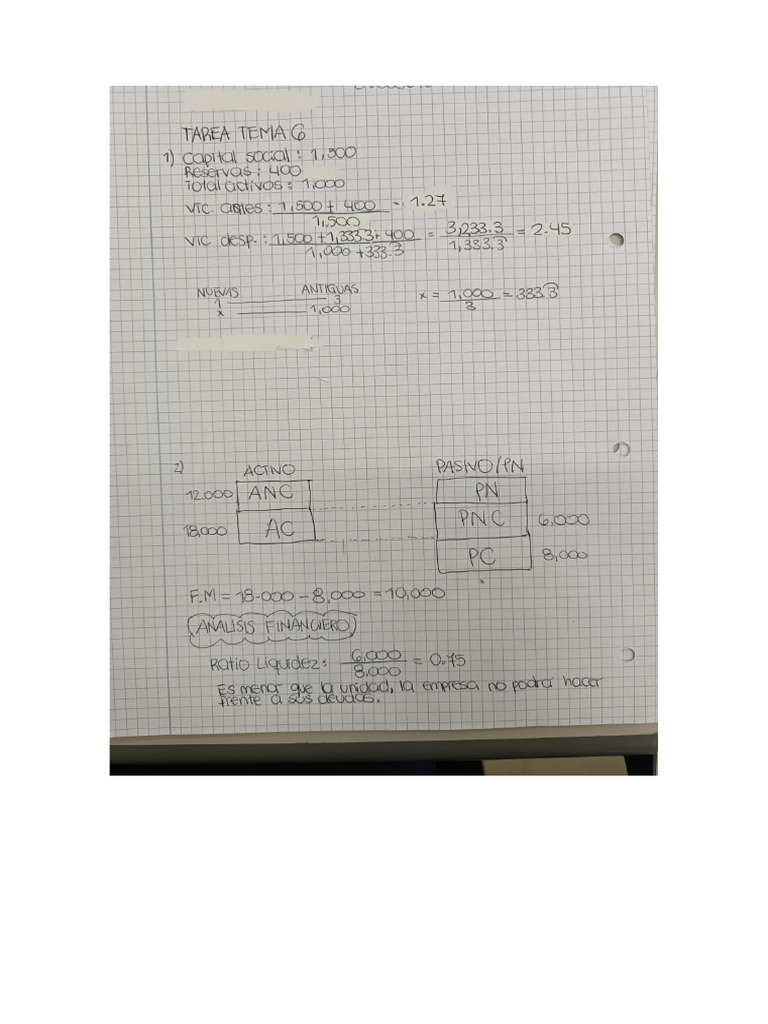 TAREA TEMA 6
1) Capital social: 1,500
Reservas: 400
Total activos: 1,000
V.T.C. antes: 1,500 + 400 / 1,500 = 1.27
V.T.C. desp.: 1,500 + 1,333.3 + 400 / 1,000 + 333.3 = 3,233.3 / 1,333.3 = 2.45
NUEVAS ANTIGUAS
1 3
x 1,000
x = 1,000 / 3 = 333.3
2) ACTIVO PASIVO/PN
12.000 ANC PN
18,000 AC PNC 6,000
PC 8,000
F.M = 18.000 - 8,000 = 10,000
ANÁLISIS FINANCIERO
Ratio Liquidez: 6,000 / 8.000 = 0.75
Es menor que la unidad, la empresa no podrá hacer
frente a sus deudas.